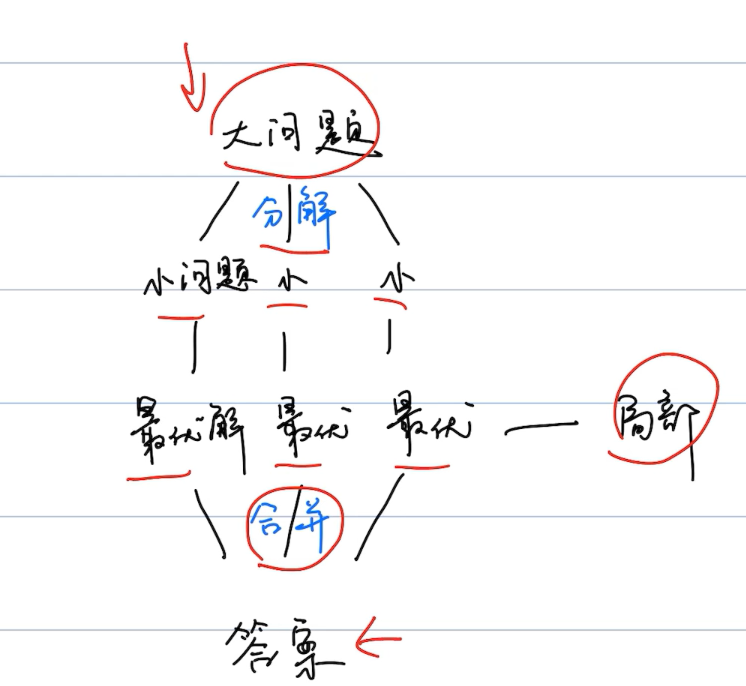 大问题
分解
小问题 小 小
最优解 最优 最优 — 局部
合并
答案